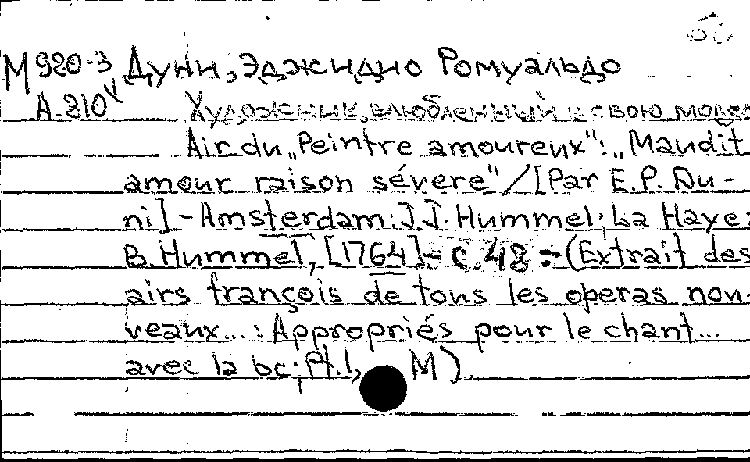 М920-3 Дуни, Эджидио Ромуальдо
A-210
Художник, влюбленный в свою модел
Air du „Peintre amoureux": „Maudit
amour raison sévere"/[Par E.P. Du-
ni]-Amsterdam: J.J. Hummel; La Haye:
B. Hummel, [1764]- c. 48 - (Extrait des
airs françois de tous les operas nou-
veaux...: Appropriés pour le chant...
avec la bc; Pt. 1, M)